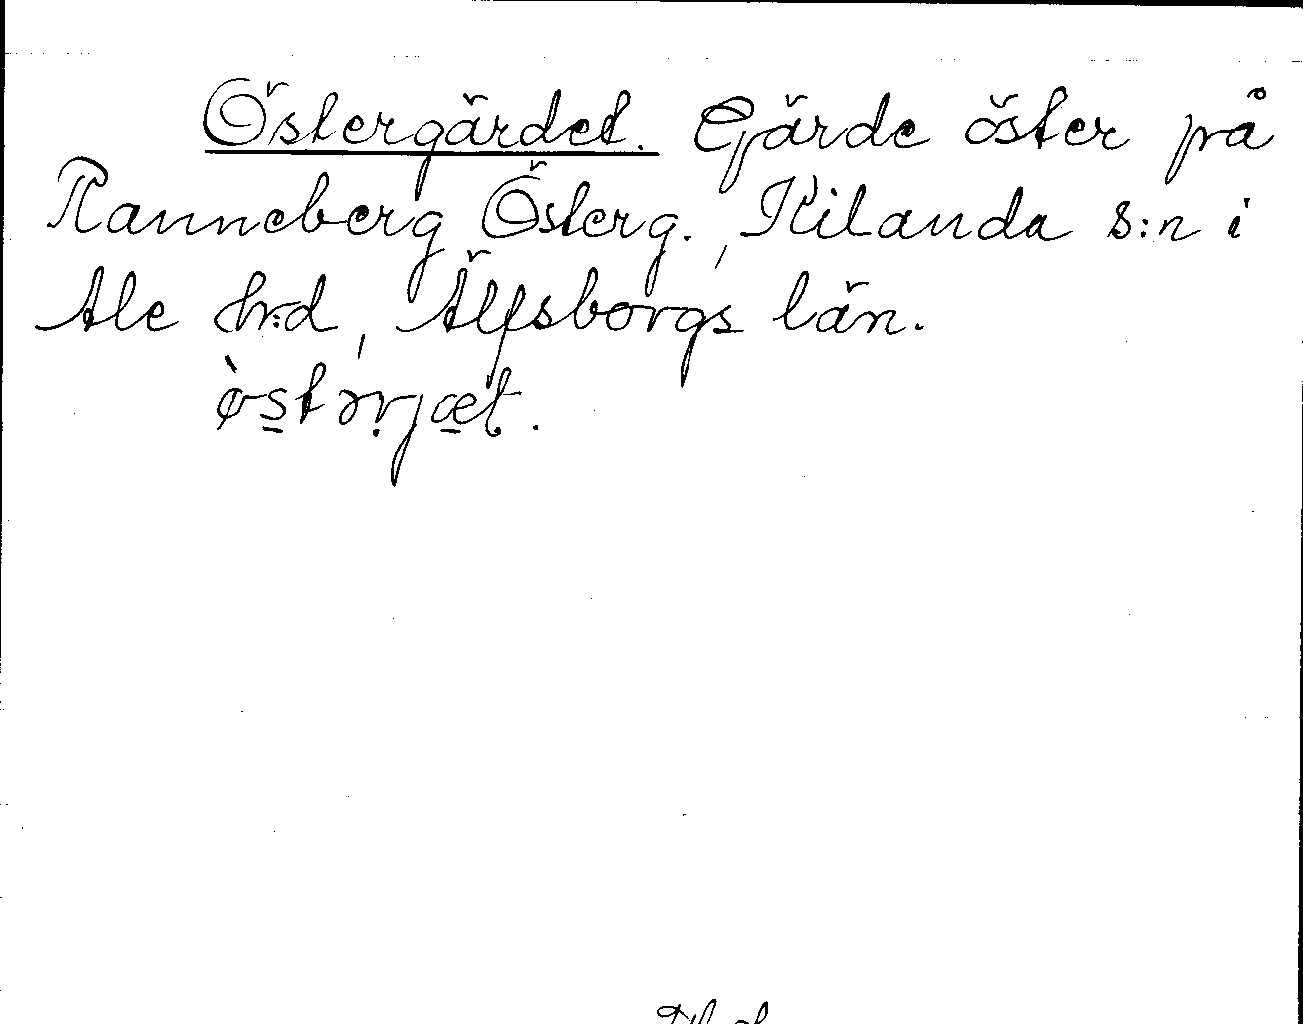 Östergärdet. Gärde öster på
Ranneberg Österg., Kilanda s:n i
Ale hrd, Älfsborgs län.
ø̀s̱tərjæ̱t.